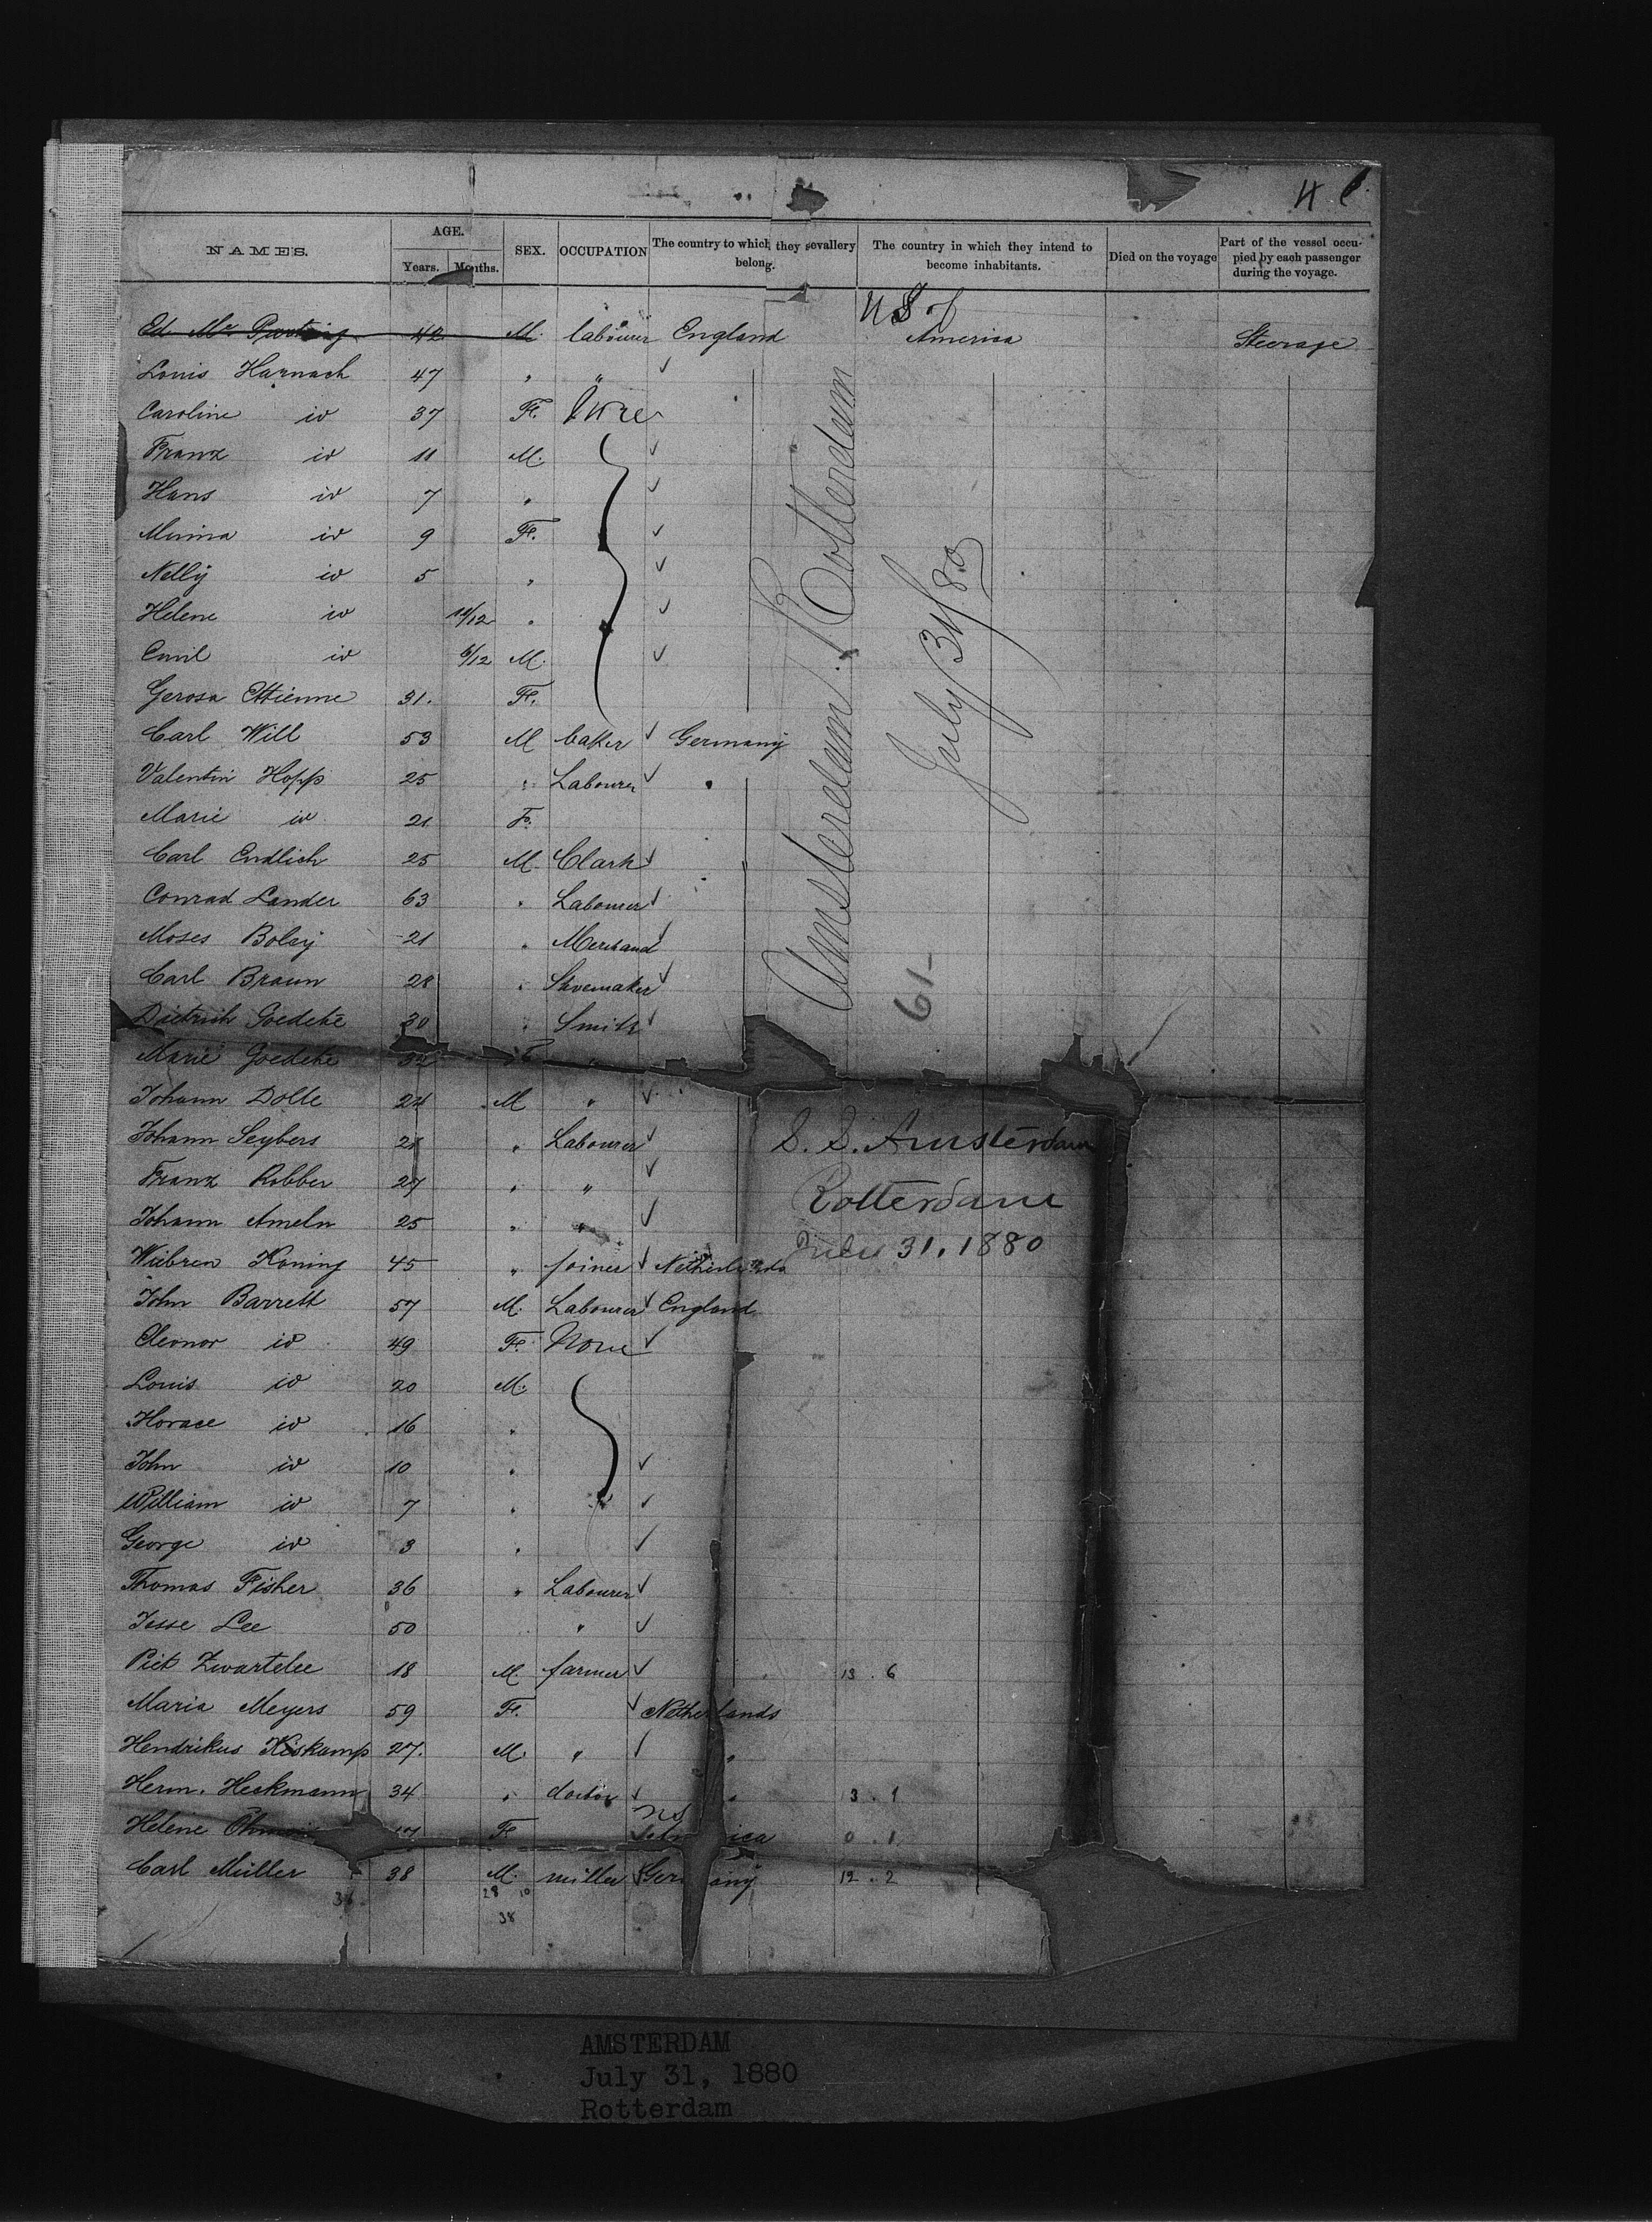 4
NAMES. AGE. Years. Months. SEX. OCCUPATION The country to which they sevallery belong. The country in which they intend to become inhabitants. Died on the voyage Part of the vessel occupied by each passenger during the voyage.
U S of
Ed. Mc 42 M. labourer England America Steerage
Louis Harnach 47 " "
Caroline id 37 F. None
Franz id 11 M.
Hans id 7 "
Minna id 9 F.
Nelly id 5 "
Helene id 11/12 "
Emil id 6/12 M.
Gerosa Ettienne 31. F.
Carl Will 53 M baker Germany
Valentin Hopp 25 " Labourer "
Marie id 21 F.
Carl Endlich 25 M. Clark
Conrad Lander 63 " Labourer
Moses Bolay 21 " Merchand
Carl Braun 28 " Shoemaker
Dietrich Goedeke 30 " Smith
Marie Goedeke 32 F "
Johann Dolle 24 M "
Johann Seybers 21 " Labourer
Franz Robber 27 " "
Johann Ameln 25 " "
Wiebren Koning 45 " joiner Netherlands
John Barrett 57 M. Labourer England
Eleonor id 49 F. None
Louis id 20 M.
Horace id 16 "
John id 10 "
William id 7 "
George id 3 "
Thomas Fisher 36 " Labourer
Jesse Lee 50 "
Piet Zwartelee 18 M. farmer 13.6
Maria Meyers 59 F. Netherlands
Hendrikus Kiskamp 27. M. " "
Herm. Heckmann 34 " doctor " 3.1
Helene 17 F. US America 0.1
Carl Müller 38 M. miller Germany 12.2
28 10
38
Amsterdam. Rotterdam
July 31/80
61-
S. S. Amsterdam
Rotterdam
July 31. 1880
AMSTERDAM
July 31, 1880
Rotterdam